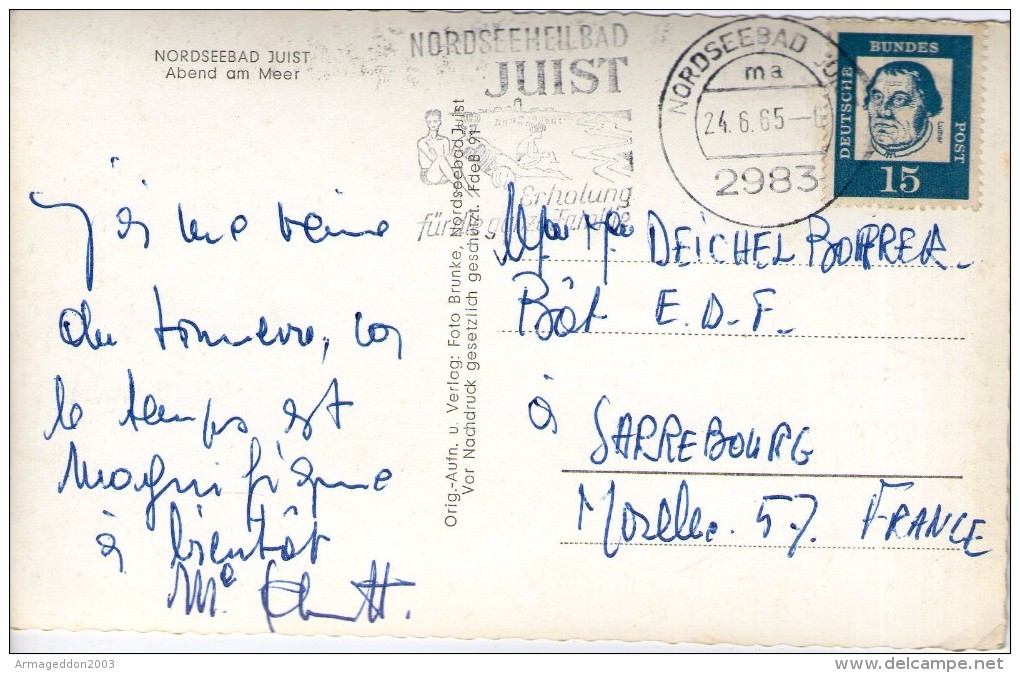 NORDSEEBAD JUIST
Abend am Meer
NORDSEEHEILBAD
JUIST
Erholung
für die ganze Familie
NORDSEEBAD JUIST
ma
24.6.65
2983
DEUTSCHE
BUNDES
POST
Luther
15
Orig.-Aufn. u. Verlag: Foto Brunke, Nordseebad Juist
Vor Nachdruck gesetzlich geschützt. FdeB 91
du tonnerre, car
le temps est
magnifique
à bientôt
Me
DEICHEL
Bât E.D.F.
à
SARREBOURG
Moselle. 57. FRANCE
Armageddon2003
www.delcampe.net